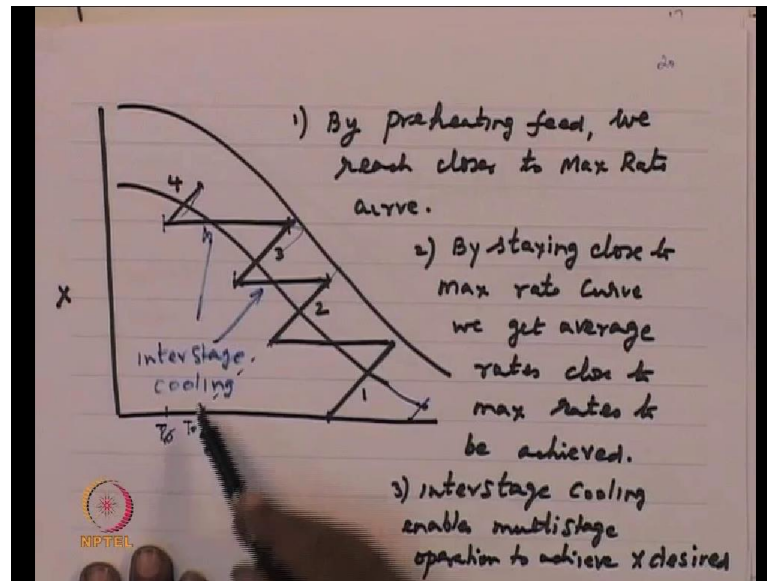 20
1) By preheating feed, we
reach closer to Max Rate
curve.
2) By staying close to
max rate curve
we get average
rates close to
max rates to
be achieved.
3) interstage cooling
enables multistage
operation to achieve X desired
X
4
3
2
1
interstage
cooling
To
NPTEL